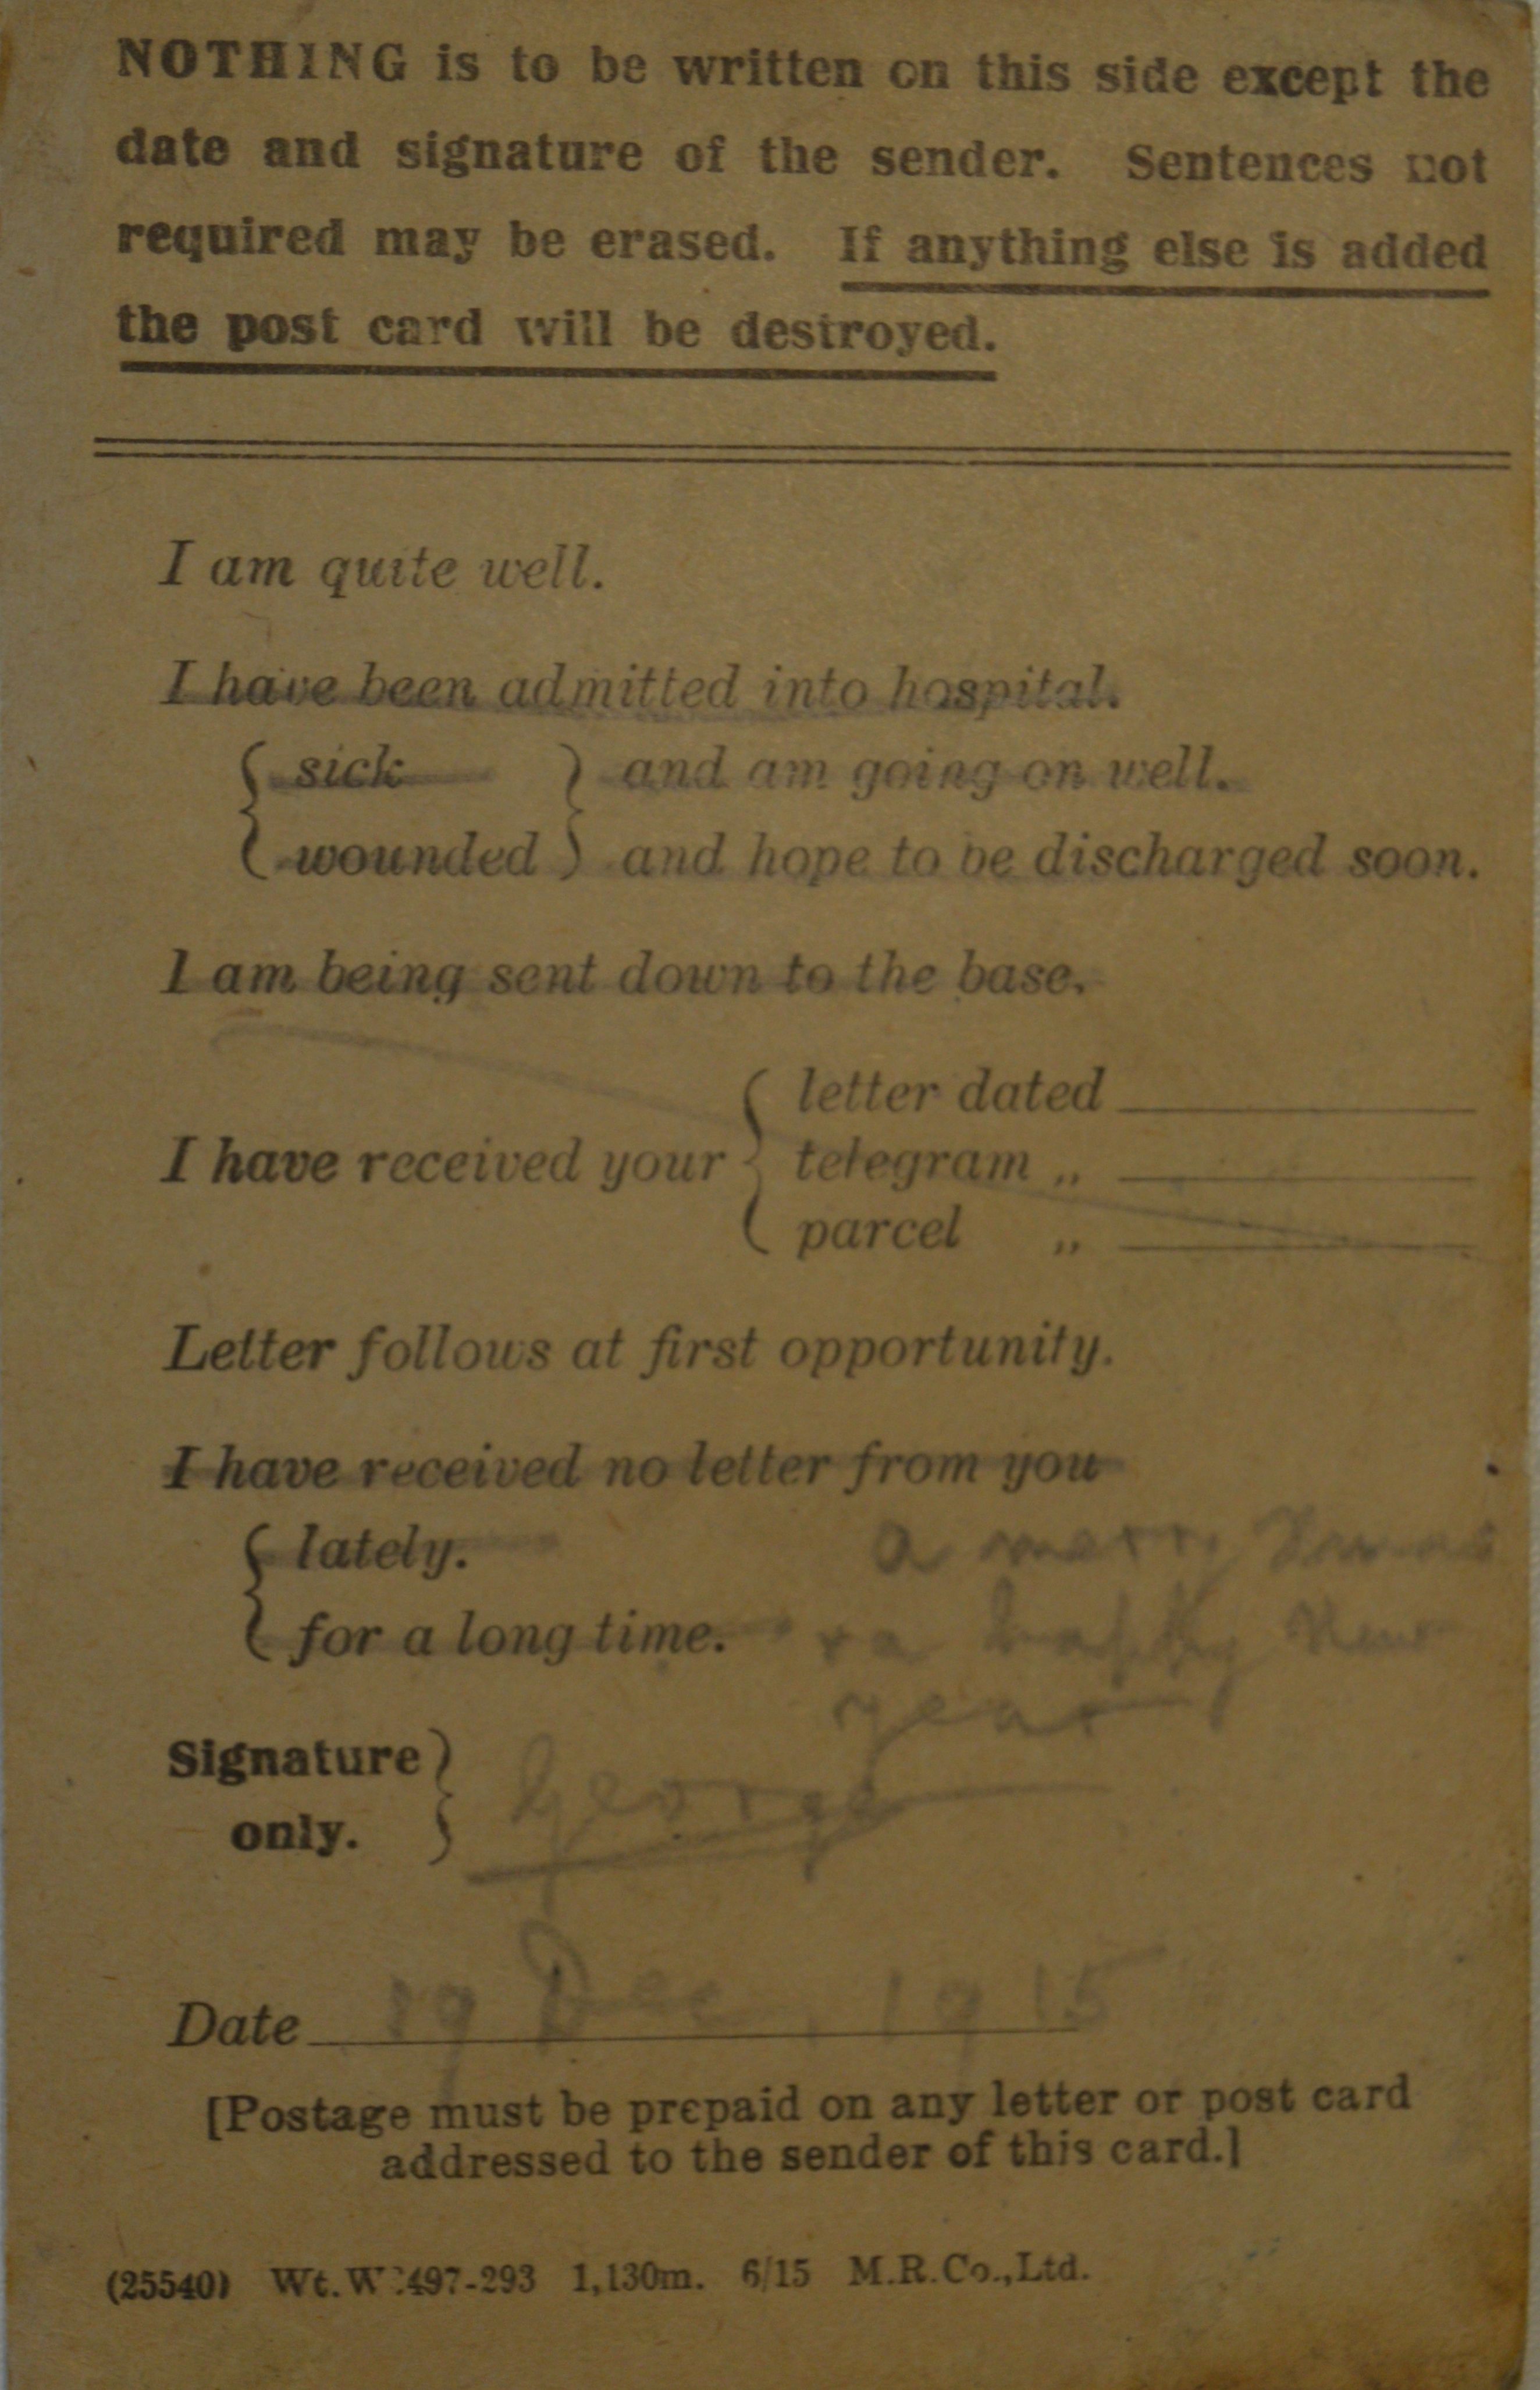 NOTHING is to be written on this side except the
date and signature of the sender. Sentences not
required may be erased. If anything else is added
the post card will be destroyed.
I am quite well.
I have been admitted into hospital.
sick and am going on well.
wounded and hope to be discharged soon.
I am being sent down to the base.
letter dated
I have received your telegram „
parcel „
Letter follows at first opportunity.
I have received no letter from you
lately.
a merry Xmas
for a long time.
+ a happy New
year
Signature
George
only.
Date 19 Dec, 1915
[Postage must be prepaid on any letter or post card
addressed to the sender of this card.]
(25540) Wt. 497-293 1,130m. 6/15 M.R.Co.,Ltd.